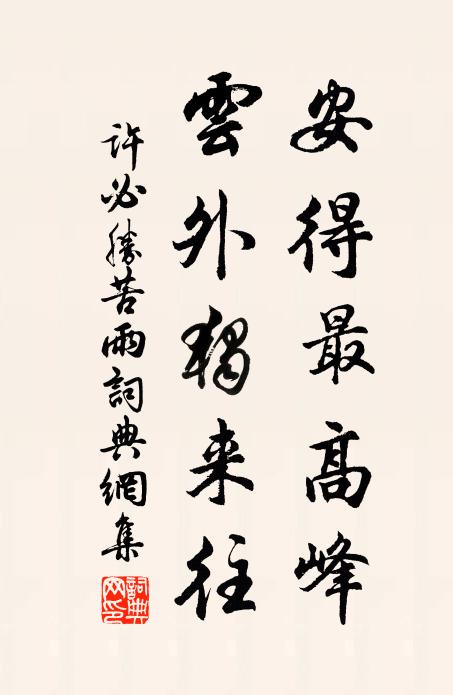 安得最高峰
雲外獨来往
許必勝苦雨詞典網集
詞典网印